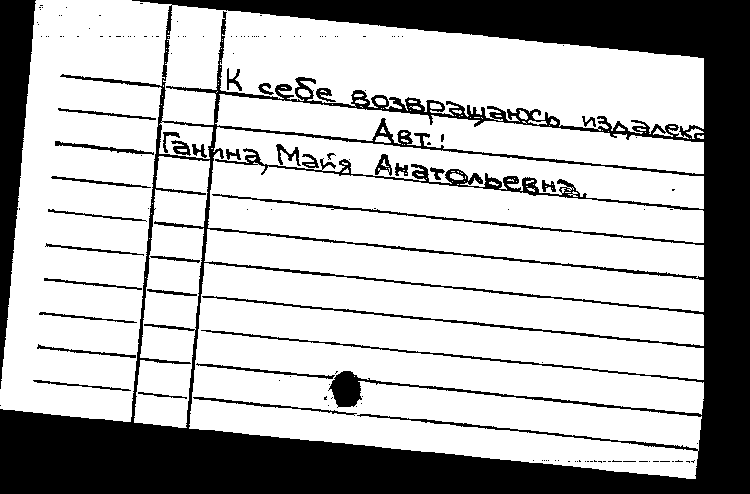 К себе возвращаюсь издалека
Авт.:
Ганина, Майя Анатольевна.